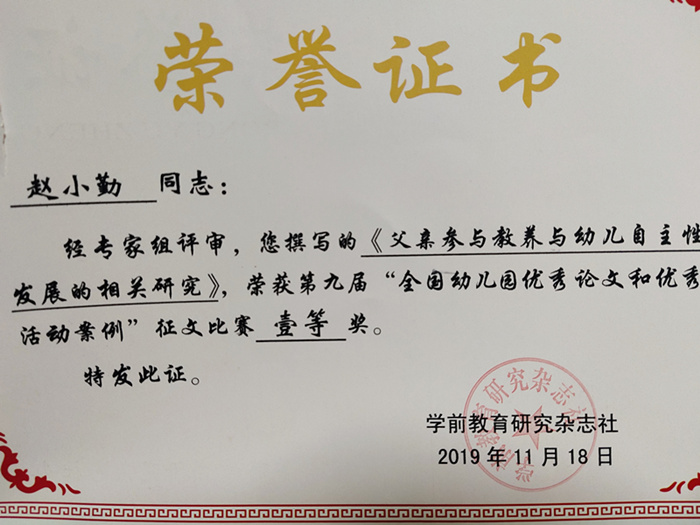 荣誉证书
赵小勤 同志：
经专家组评审，您撰写的《父亲参与教养与幼儿自主性
发展的相关研究》，荣获第九届“全国幼儿园优秀论文和优秀
活动案例”征文比赛 壹等 奖。
特发此证。
学前教育研究杂志社
2019年11月18日
学前教育研究杂志社